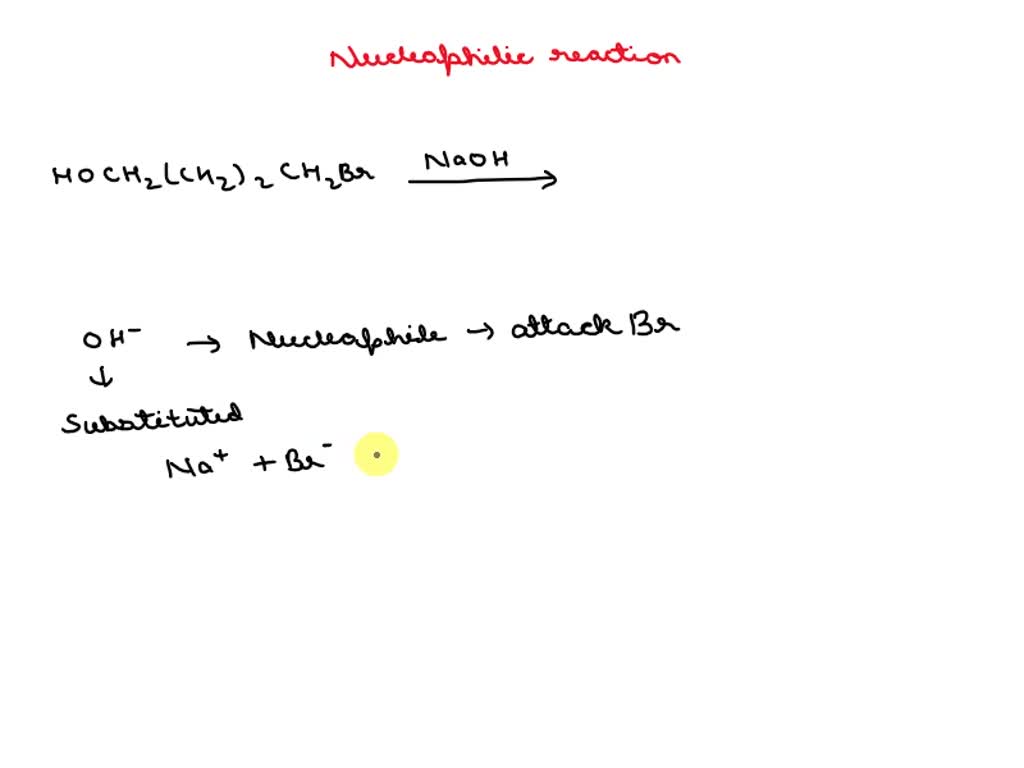 Nucleophilic reaction
NaOH
HOCH₂(CH₂)₂CH₂Br ⟶
OH⁻ → Nucleophile → attack Br
↓
Substituted
Na⁺ + Br⁻